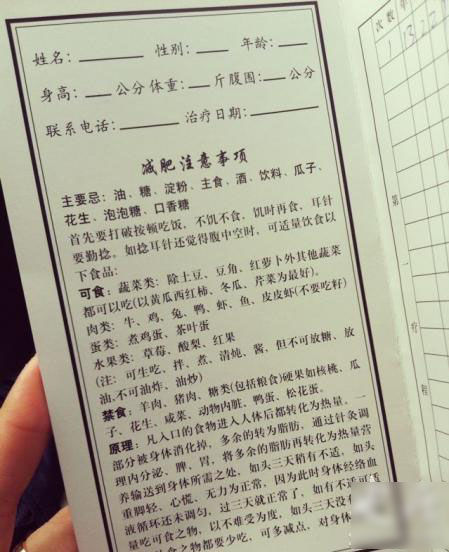 姓名： 性别： 年龄：
身高： 公分 体重： 斤 腹围： 公分
联系电话： 治疗日期：
减肥注意事项
主要忌：油、糖、淀粉、主食、酒、饮料、瓜子、
花生、泡泡糖、口香糖
首先要打破按顿吃饭，不饥不食，饥时再食，耳针
要勤捻。如捻耳针还觉得腹中空时，可适量饮食以
下食品：
可食：蔬菜类：除土豆、豆角、红萝卜外其他蔬菜
都可以吃(以黄瓜西红柿、冬瓜、芹菜为最好)。
肉类：牛、鸡、兔、鸭、虾、鱼、皮皮虾(不要吃籽)
蛋类：煮鸡蛋、茶叶蛋
水果类：草莓、酸梨、红果
(注：可生吃，拌、煮、清炖、酱，但不可放糖、放
油,不可油炸、油炒)
禁食：羊肉、猪肉、糖类(包括粮食)硬果如核桃、瓜
子、花生、咸菜、动物内脏、鸭蛋、松花蛋。
原理：凡入口的食物进入人体后都转化为热量，一
部分被身体消化掉，多余的转为脂肪，通过针灸调
理内分泌，脾、胃，将多余的脂肪再转化为热量营
养输送到身体所需之处，如头三天稍有不适，如头
重脚轻、心慌、无力为正常，因为此时身体经络血
液循环还未调匀，过三天就正常了，如有不适可适
量吃可食之物，以不难受为度，如头三天没
食之物都要少吃，可多减点，对身体
次数
1
第
一
疗
程